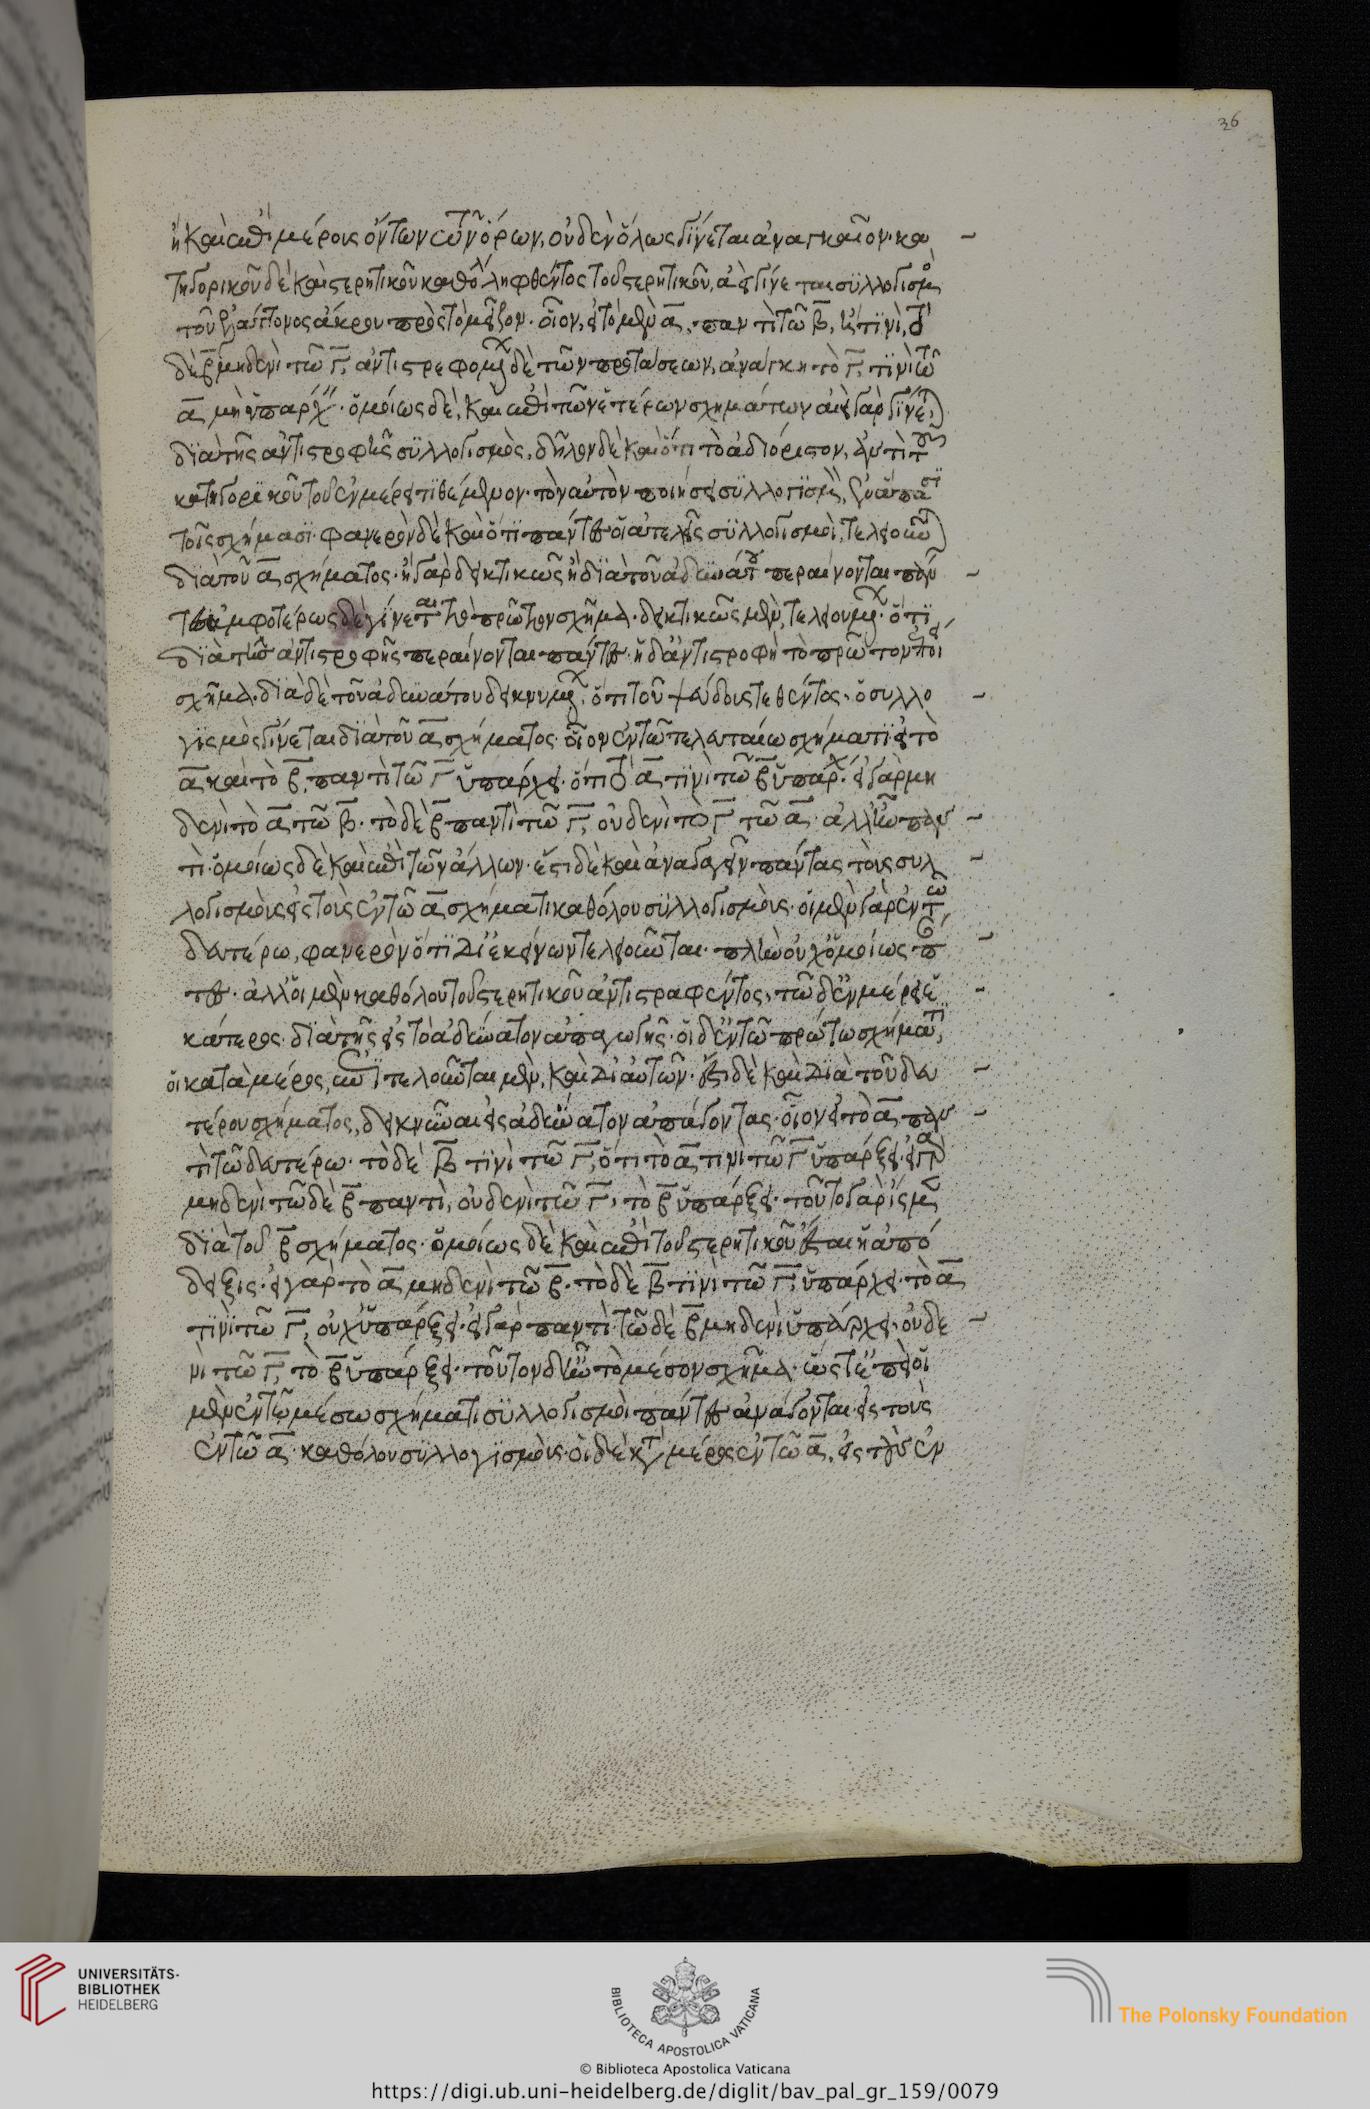 36
ἢ καὶ ἐπὶ μέροις ὄντων τῶν ὅρων, οὐδὲν ὅλως γίνεται ἀναγκαῖον· κα
τηγορικοῦ δὲ καὶ στερητικοῦ καθόλ ληφθέντος τοῦ στερητικοῦ, ἀεὶ γίνεται συλλογισμὸς
τοῦ ἐλάττονος ἄκρου πρὸς τὸ μεῖζον· οἷον, εἰ τὸ μὲν α, παντὶ τῶ β, ἢ τινὶ, τὸ
δὲ β μηδενὶ τῶ γ, ἀντιστρεφομένων δὲ τῶν προτάσεων, ἀνάγκη τὸ γ, τινὶ τῶ
α μὴ ὑπάρχειν· ὁμοίως δὲ, καὶ ἐπὶ τῶν ἑτέρων σχημάτων ἀεὶ γὰρ γίνεται
διὰ τῆς ἀντιστροφῆς συλλογισμὸς, δῆλον δὲ καὶ ὅτι τὸ ἀδιόριστον, ἀντὶ τοῦ
κατηγορικοῦ τοῦ ἐν μέρει τιθέμενον· τὸν αὐτὸν ποιήσει συλλογισμὸν, ἐν ἅπασι
τοῖς σχήμασι· φανερὸν δὲ καὶ ὅτι πάντες οἱ ἀτελεῖς συλλογισμοὶ, τελειοῦνται
διὰ τοῦ α σχήματος· ἢ γὰρ δεικτικῶς ἢ διὰ τοῦ ἀδυνάτου περαίνονται πάν
τες ἀμφοτέρως δὲ γίνεται τὸ πρῶτον σχῆμα· δεικτικῶς μὲν, τελειουμένων· ὅτι
διὰ τῆς ἀντιστροφῆς περαίνονται πάντες· ἡ δ' ἀντιστροφὴ τὸ πρῶτον ποιεῖ
σχῆμα· διὰ δὲ τοῦ ἀδυνάτου δεικνυμένων, ὅτι τοῦ ψεύδους τεθέντος· ὁ συλλο
γισμὸς γίνεται διὰ τοῦ α σχήματος· οἷον ἐν τῶ τελευταίω σχήματι εἰ τὸ
α καὶ τὸ β, παντὶ τῶ γ ὑπάρχει· ὅτι τὸ α τινὶ τῶ β ὑπάρχει· εἰ γὰρ μη
δενὶ τὸ α τῶ β· τὸ δὲ β παντὶ τῶ γ, οὐδενὶ τὸ γ τῶ α· ἀλλ' ἦν παν
τὶ· ὁμοίως δὲ καὶ ἐπὶ τῶν ἄλλων· ἔστι δὲ καὶ ἀναγαγεῖν πάντας τοὺς συλ
λογισμοὺς εἰς τοὺς ἐν τῶ α σχήματι καθόλου συλλογισμοὺς· οἱ μὲν γὰρ ἐν τῶ
δευτέρω, φανερὸν ὅτι δι' ἐκείνων τελειοῦνται· πλὴν οὐχ ὁμοίως πάν
τες· ἀλλ' οἱ μὲν καθόλου τοῦ στερητικοῦ ἀντιστραφέντος, τῶ δ' ἐν μέρει ἑ
κάτερος διὰ τῆς εἰς τὸ ἀδύνατον ἀπαγωγῆς· οἱ δ' ἐν τῶ πρώτω σχήματι,
οἱ κατὰ μέρος, ἐπιτελοῦνται μὲν, καὶ δι' αὑτῶν· ἔστι δὲ καὶ διὰ τοῦ δευ
τέρου σχήματος, δεικνύναι εἰς ἀδύνατον ἀπάγοντας· οἷον εἰ τὸ α, παν
τὶ τῶ δευτέρω· τὸ δὲ β τινὶ τῶ γ, ὅτι τὸ α τινὶ τῶ γ ὑπάρξει· εἰ γὰρ
μηδενὶ τῶ δὲ β παντὶ, οὐδενὶ τῶ γ, τὸ β ὑπάρξει· τοῦτο γὰρ ἴσμεν
διὰ τοῦ β σχήματος· ὁμοίως δὲ καὶ ἐπὶ τοῦ στερητικοῦ ἔσται ἡ ἀπό
δειξις· εἰ γὰρ τὸ α μηδενὶ τῶ β· τὸ δὲ β τινὶ τῶ γ ὑπάρχει· τὸ α
τινὶ τῶ γ, οὐχ ὑπάρξει· εἰ γὰρ παντὶ· τῶ δὲ β μηδενὶ ὑπάρχει· οὐδε
νὶ τῶ γ, τὸ β ὑπάρξει· τοῦτο δ' ἦν τὸ μέσον σχῆμα· ὥστ' ἐπεὶ οἱ
μὲν ἐν τῶ μέσω σχήματι συλλογισμοὶ πάντες ἀνάγονται· εἰς τοὺς
ἐν τῶ α· καθόλου συλλογισμοὺς· οἱ δὲ κατὰ μέρος ἐν τῶ α, εἰς τοὺς ἐν
UNIVERSITÄTS-
BIBLIOTHEK
HEIDELBERG
BIBLIOTECA APOSTOLICA VATICANA
© Biblioteca Apostolica Vaticana
The Polonsky Foundation
https://digi.ub.uni-heidelberg.de/diglit/bav_pal_gr_159/0079